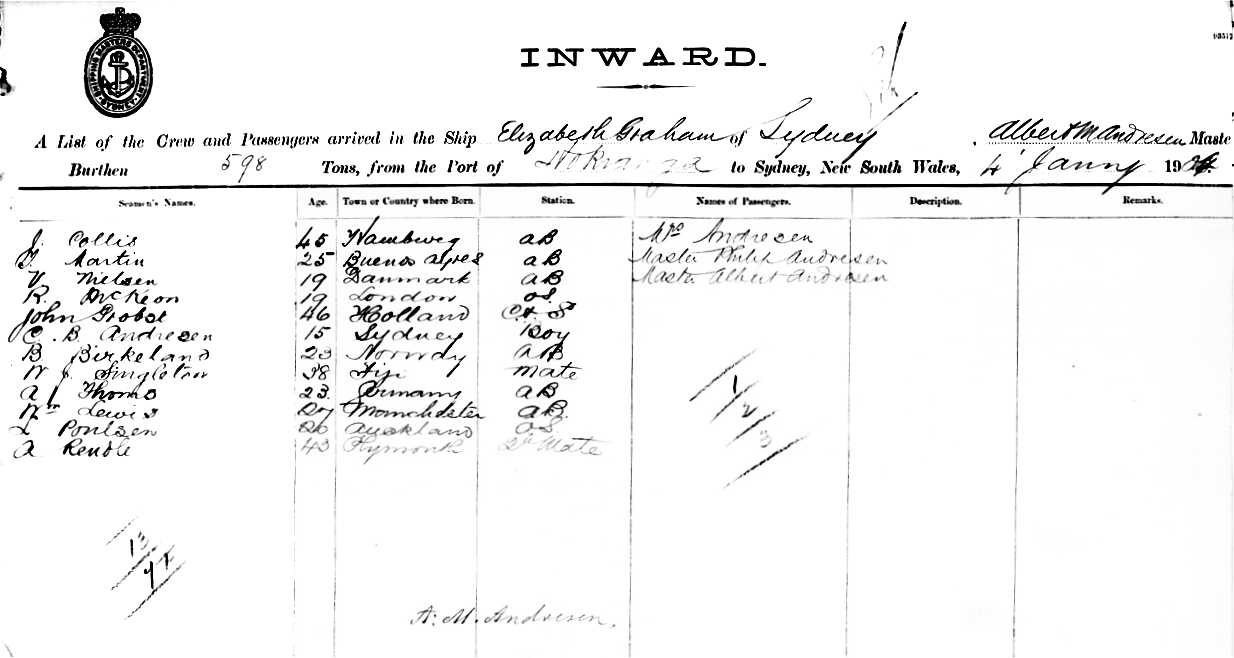 SHIPPING MASTERS DEPARTMENT. SYDNEY.
INWARD.
A List of the Crew and Passengers arrived in the Ship Elizabeth Graham of Sydney, Albert M Andresen Maste
Burthen 598 Tons, from the Port of Hokianga to Sydney, New South Wales, 4 Janny 190
Seamen's Names. Age. Town or Country where Born. Station. Names of Passengers. Description. Remarks.
J. Collis 45 Hamburg AB Mrs Andresen
Martin 25 Buenos Ayres AB Master Philip Andresen
Nielsen 19 Danmark AB Master Albert Andresen
R. McKeon 19 London OS
John Grobst 46 Holland C & St
C. B. Andresen 15 Sydney Boy
B Birkeland 23 Norway AB
W J. Singleton 38 Fiji Mate
A J Thoms 23 Germany AB
Wm Lewis Manchdster AB.
Poulsen 20 Auckland OS
A Rendle 43 Plymouth Mate
1/2
3
13
A. M. Andresen.